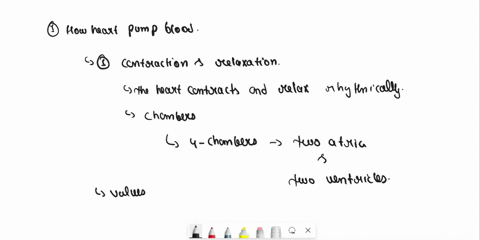 ① How heart pump blood.
↳ ① contraction & relaxation.
↳ the heart contracts and relax rhythmically.
↳ chambers
↳ 4-chambers → two atria
&
two ventricles.
↳ values